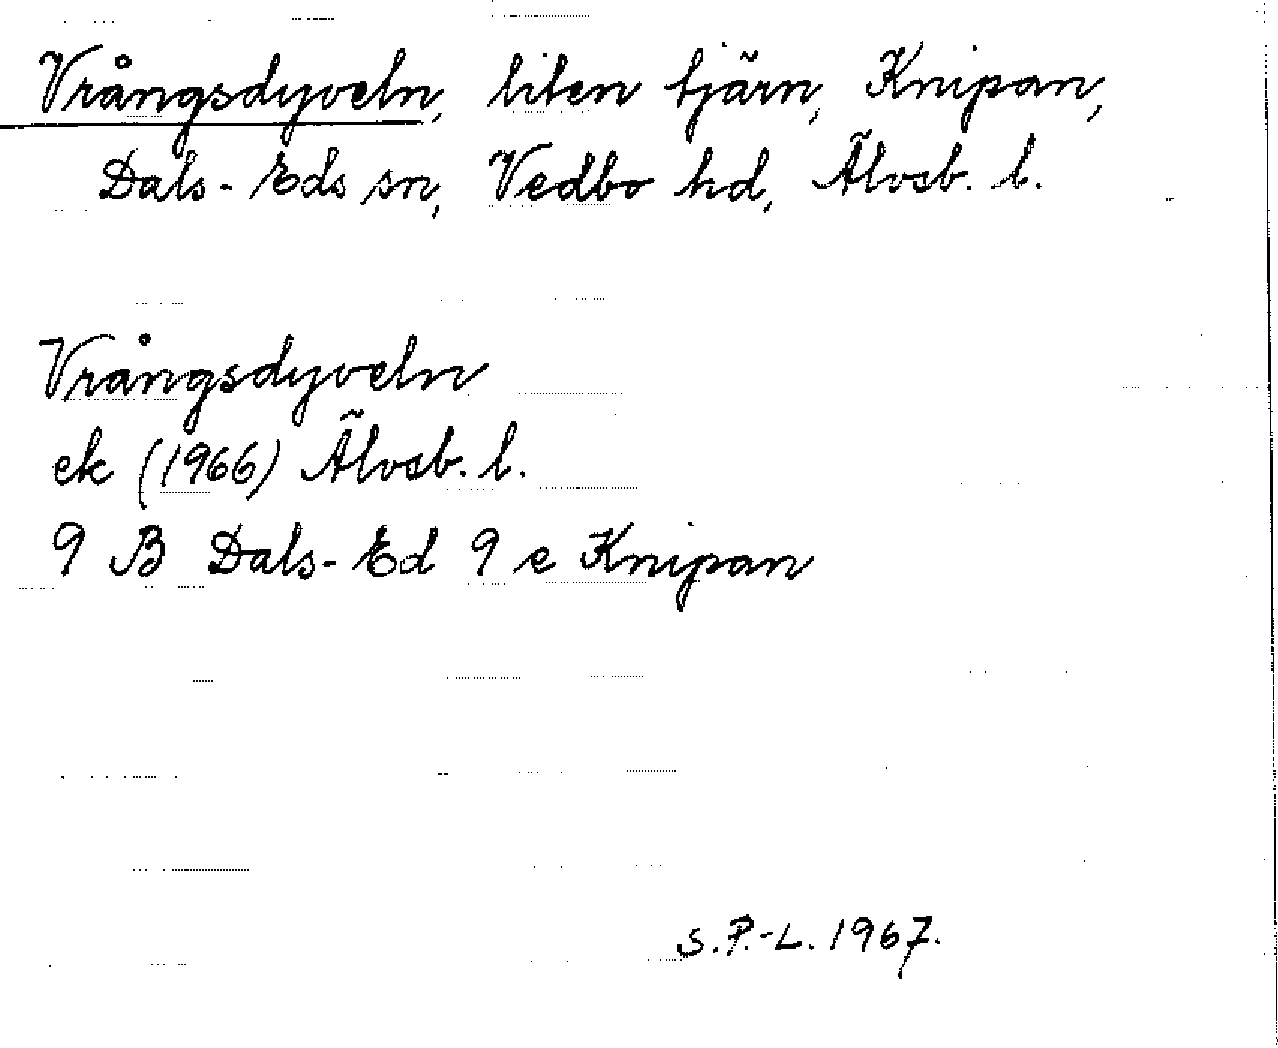 Vrångsdyveln, liten tjärn, Knipan,
Dals-Eds sn, Vedbo hd, Älvsb. l.
Vrångsdyveln
ek (1966) Älvsb. l.
9 B Dals-Ed 9 e Knipan
S.P.-L. 1967.